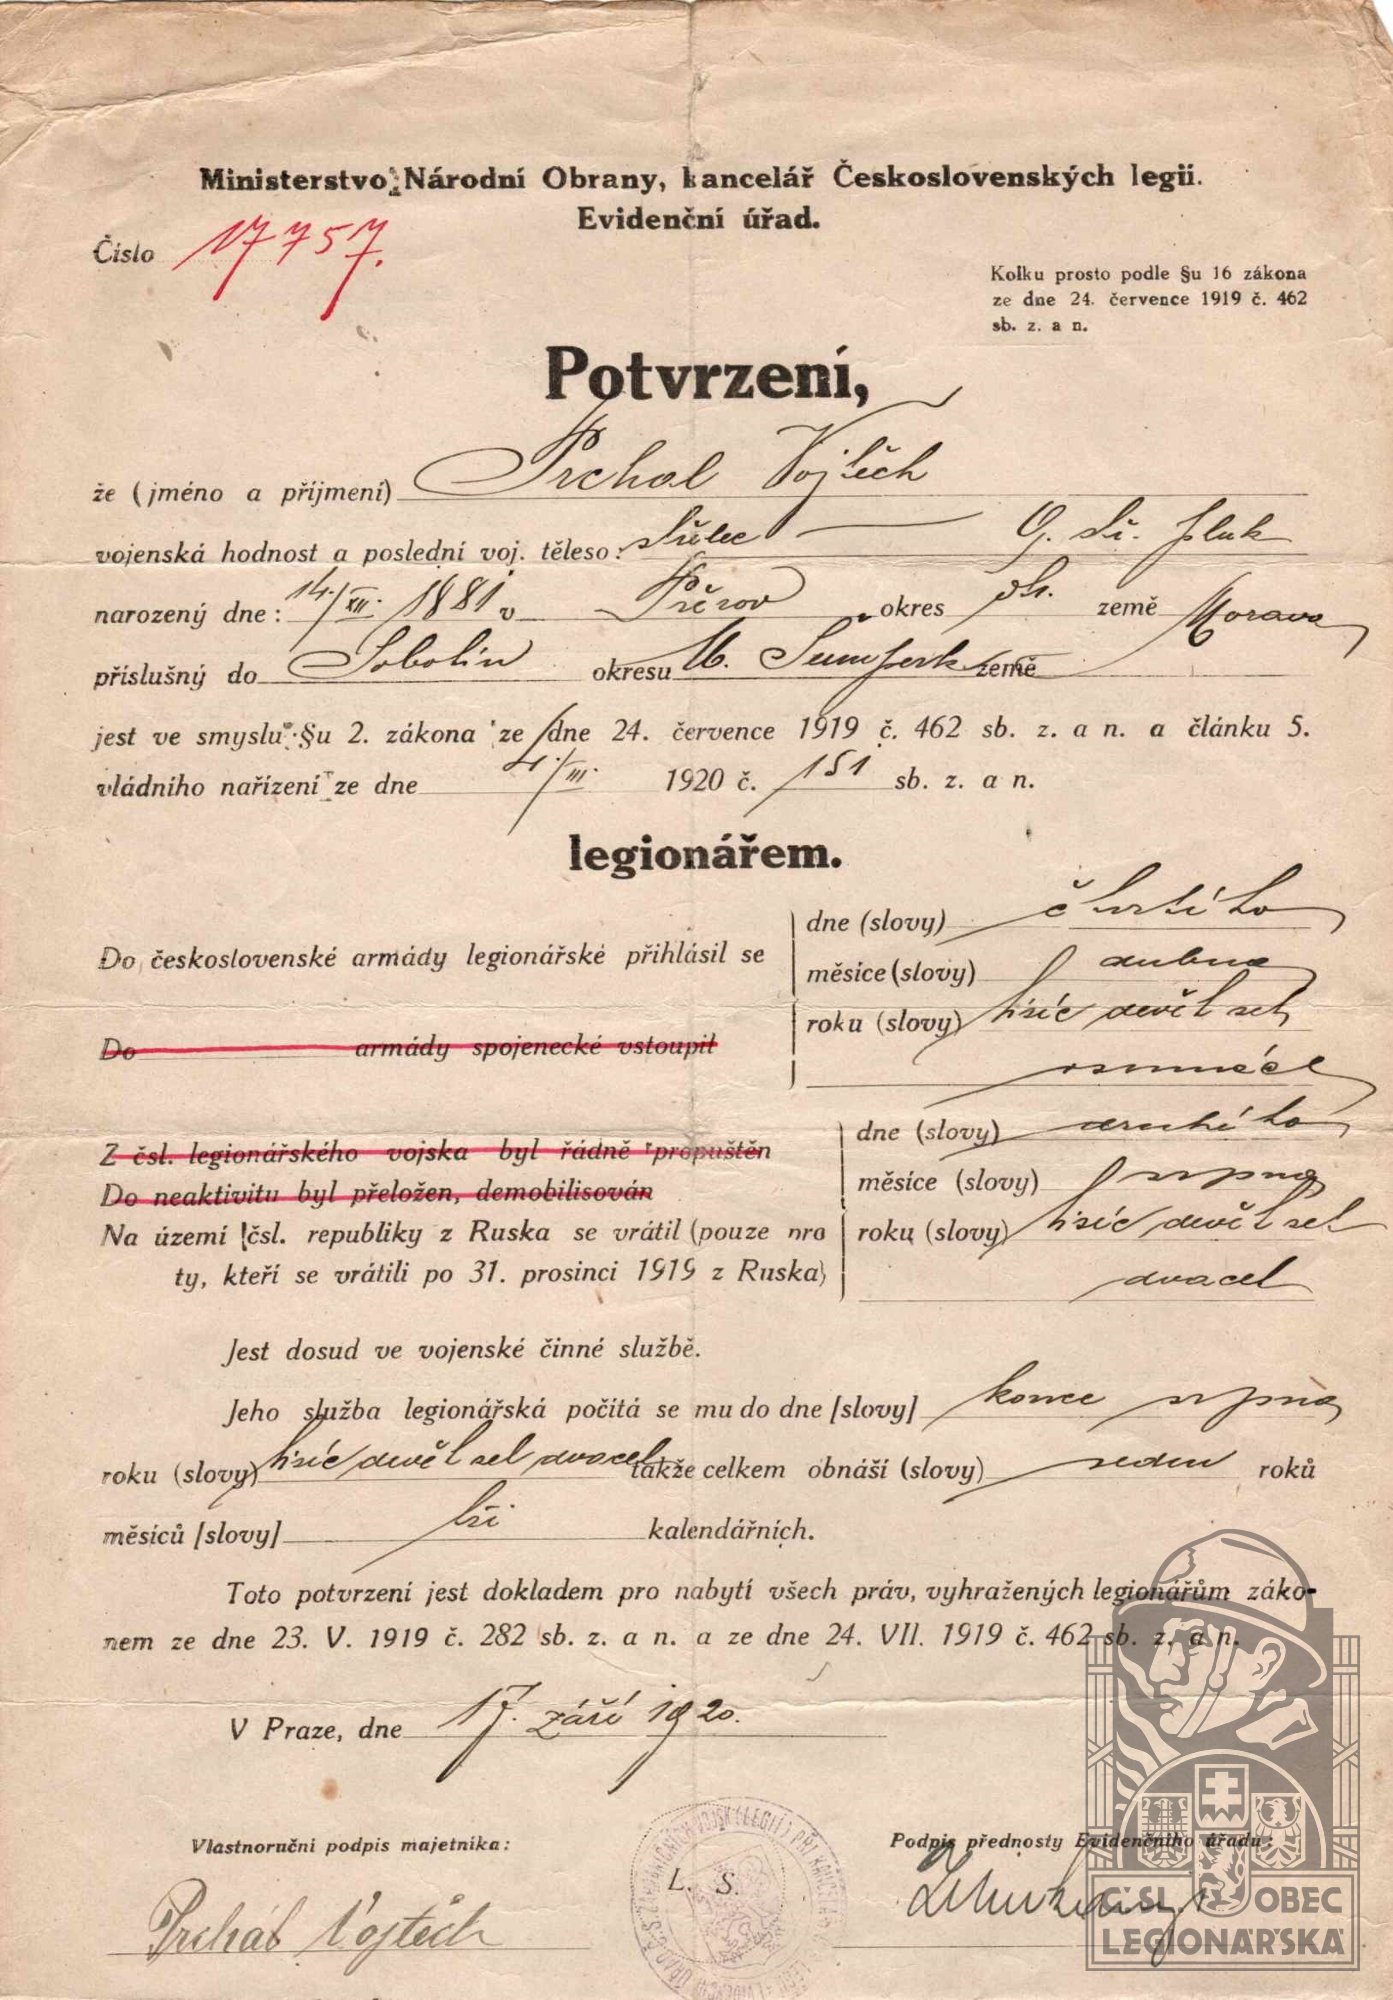 Ministerstvo Národní Obrany, kancelář Československých legií.
Evidenční úřad.
Číslo 17757.
Kolku prosto podle §u 16 zákona
ze dne 24. července 1919 č. 462
sb. z. a n.
Potvrzení,
že (jméno a příjmení) Prchal Vojtěch
vojenská hodnost a poslední voj. těleso: střelec 9. stř. pluk
narozený dne: 14./XII. 1881 v Přerov okres země Morava
příslušný do Sobotín okresu M. Šumperk země
jest ve smyslu §u 2. zákona ze dne 24. července 1919 č. 462 sb. z. a n. a článku 5.
vládního nařízení ze dne 4./III. 1920 č. 151 sb. z. a n.
legionářem.
Do československé armády legionářské přihlásil se
dne (slovy) čtvrtého
měsíce (slovy) dubna
roku (slovy) tisíc devět set
osmnáct
Do armády spojenecké vstoupil
Z čsl. legionářského vojska byl řádně propuštěn
Do neaktivitu byl přeložen, demobilisován
Na území čsl. republiky z Ruska se vrátil (pouze pro
ty, kteří se vrátili po 31. prosinci 1919 z Ruska)
dne (slovy) druhého
měsíce (slovy) srpna
roku (slovy) tisíc devět set
dvacet
Jest dosud ve vojenské činné službě.
Jeho služba legionářská počítá se mu do dne [slovy] konce srpna
roku (slovy) tisíc devět set dvacet takže celkem obnáší (slovy) jeden roků
měsíců [slovy] tři kalendářních.
Toto potvrzení jest dokladem pro nabytí všech práv, vyhražených legionářům záko-
nem ze dne 23. V. 1919 č. 282 sb. z. a n. a ze dne 24. VII. 1919 č. 462 sb. z. a n.
V Praze, dne 17. září 1920.
Vlastnoruční podpis majetníka:
Podpis přednosty Evidenčního úřadu:
L. S.
Prchal Vojtěch
ČSL OBEC
LEGIONÁŘSKÁ